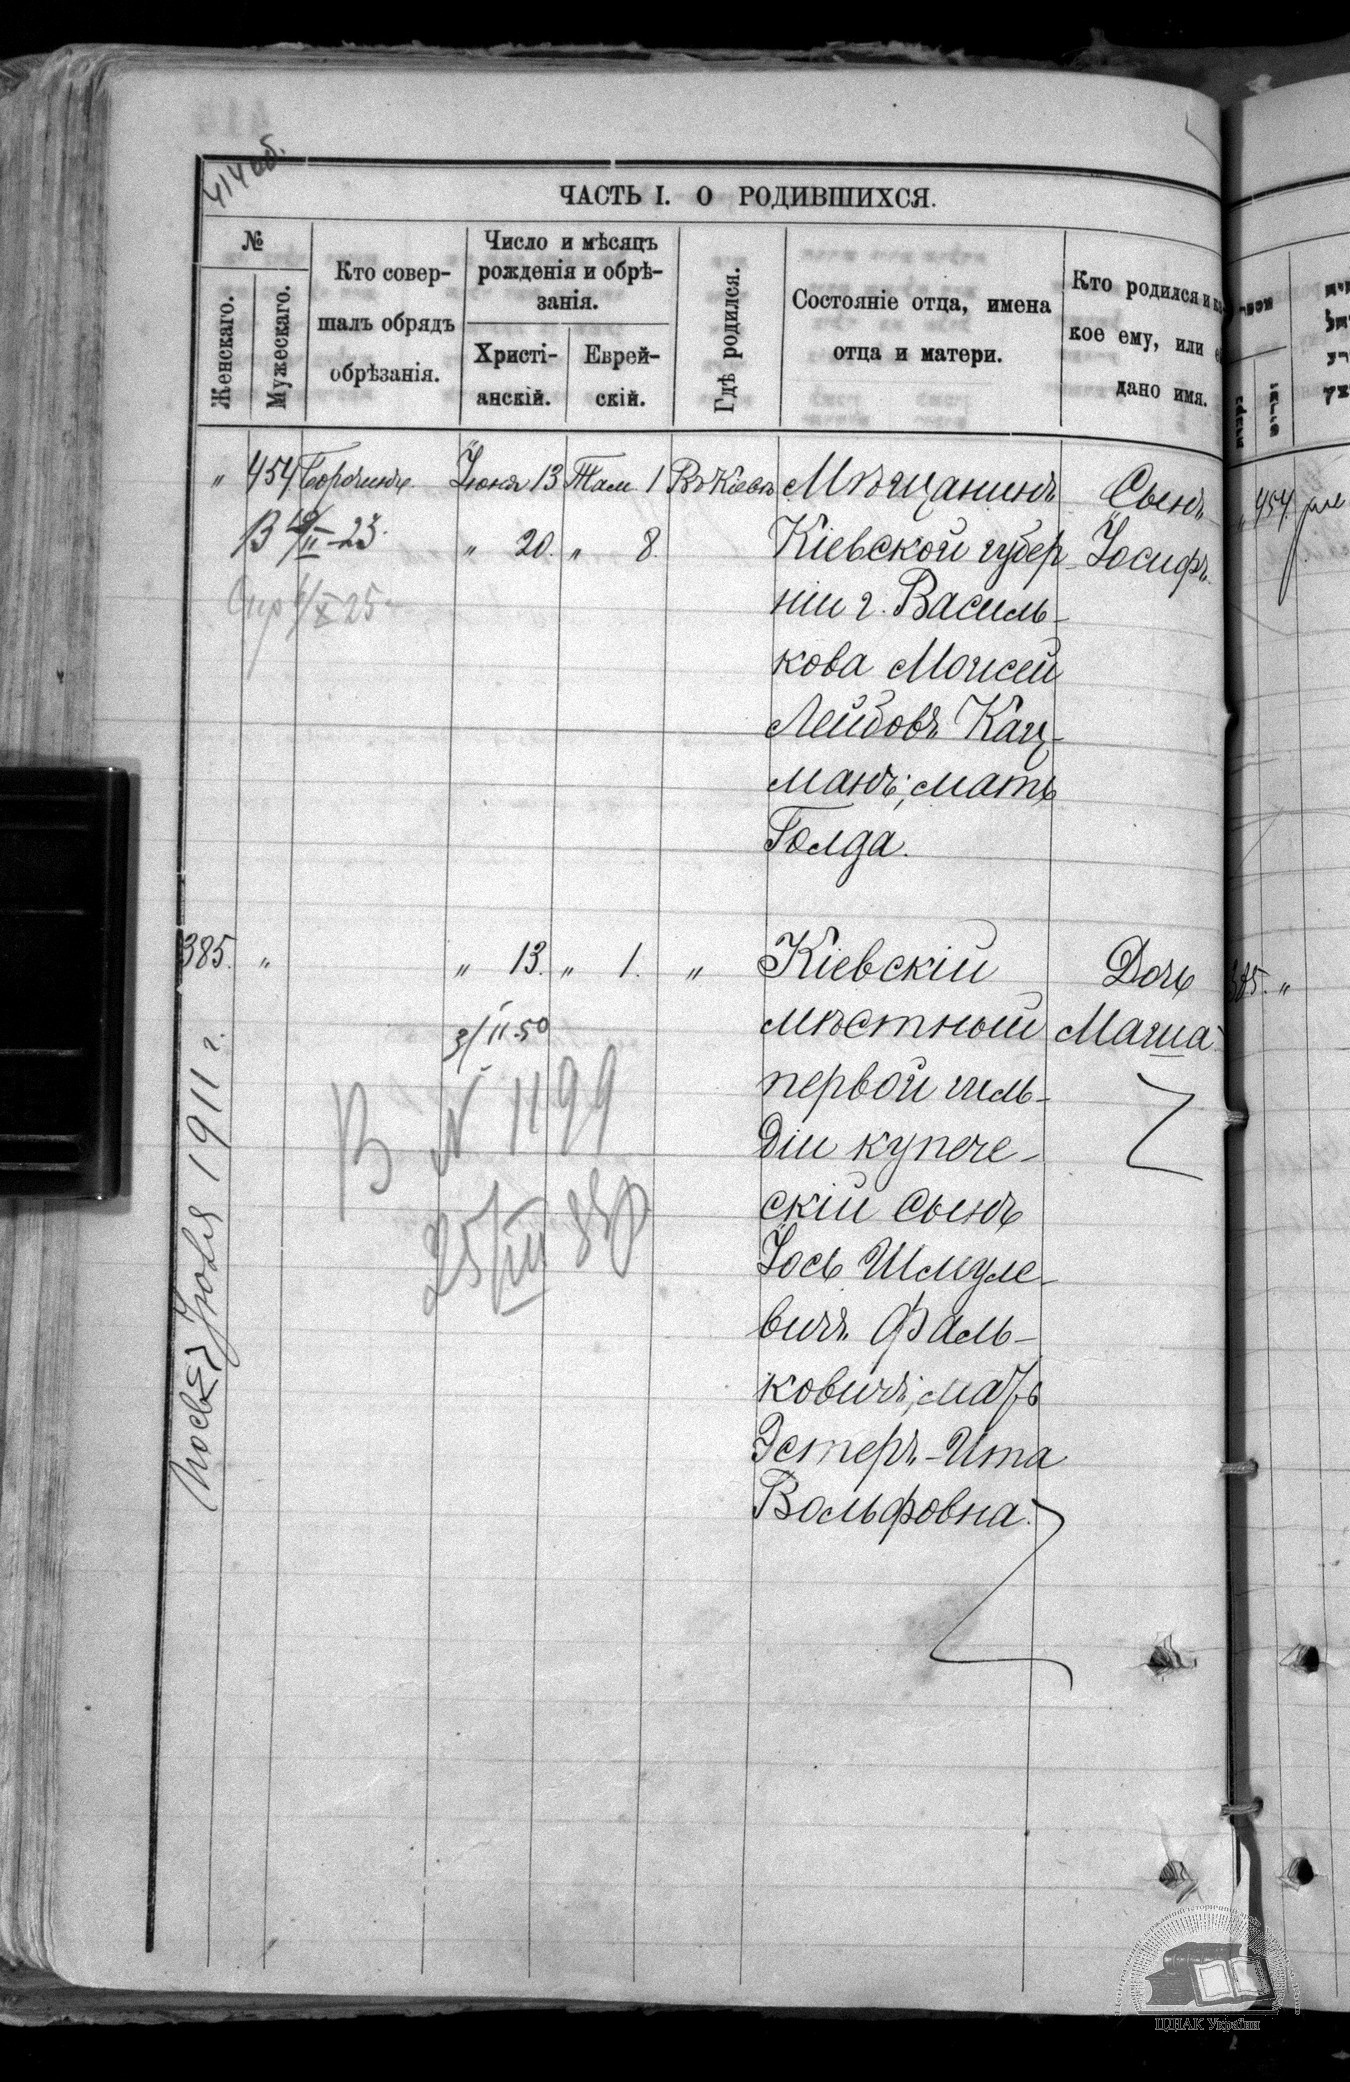 414 об.
ЧАСТЬ I. О РОДИВШИХСЯ.
№
Женскаго.
Мужескаго.
Кто совер-
шалъ обрядъ
обрѣзанія.
Число и мѣсяцъ
рожденія и обрѣ-
занія.
Христі-
анскій.
Еврей-
скій.
Гдѣ родился.
Состояніе отца, имена
отца и матери.
Кто родился и ка-
кое ему, или ей
дано имя.
" 454 Іюня 13 Там. 1 Въ Кіевѣ
" 20. " 8.
Мѣщанинъ
Кіевской губер-
ніи г. Василь-
кова Моисей
Лейбовъ Кац-
манъ; мать
Голда.
Сынъ
Іосифъ.
385. " " 13. " 1. "
3/II-50
В № 1199
Кіевскій
мѣстный
первой гиль-
діи купече-
скій сынъ
Іось Шмуле-
вичъ Фаль-
ковичъ; мать
Эстеръ-Ита
Вольфовна.
Дочь
Маша
1911 г.
454
385. "
ЦДІАК України